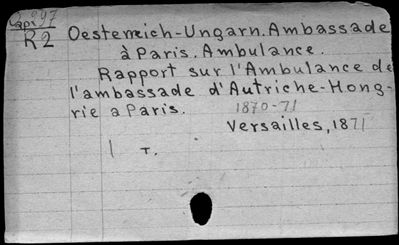 Capi 97
R2
Oesterreich-Ungarn. Ambassade
à Paris. Ambulance.
Rapport sur l'Ambulance de
l'ambassade d'Autriche-Hong-
rie a Paris. 1870-71
Versailles, 1871
| T.